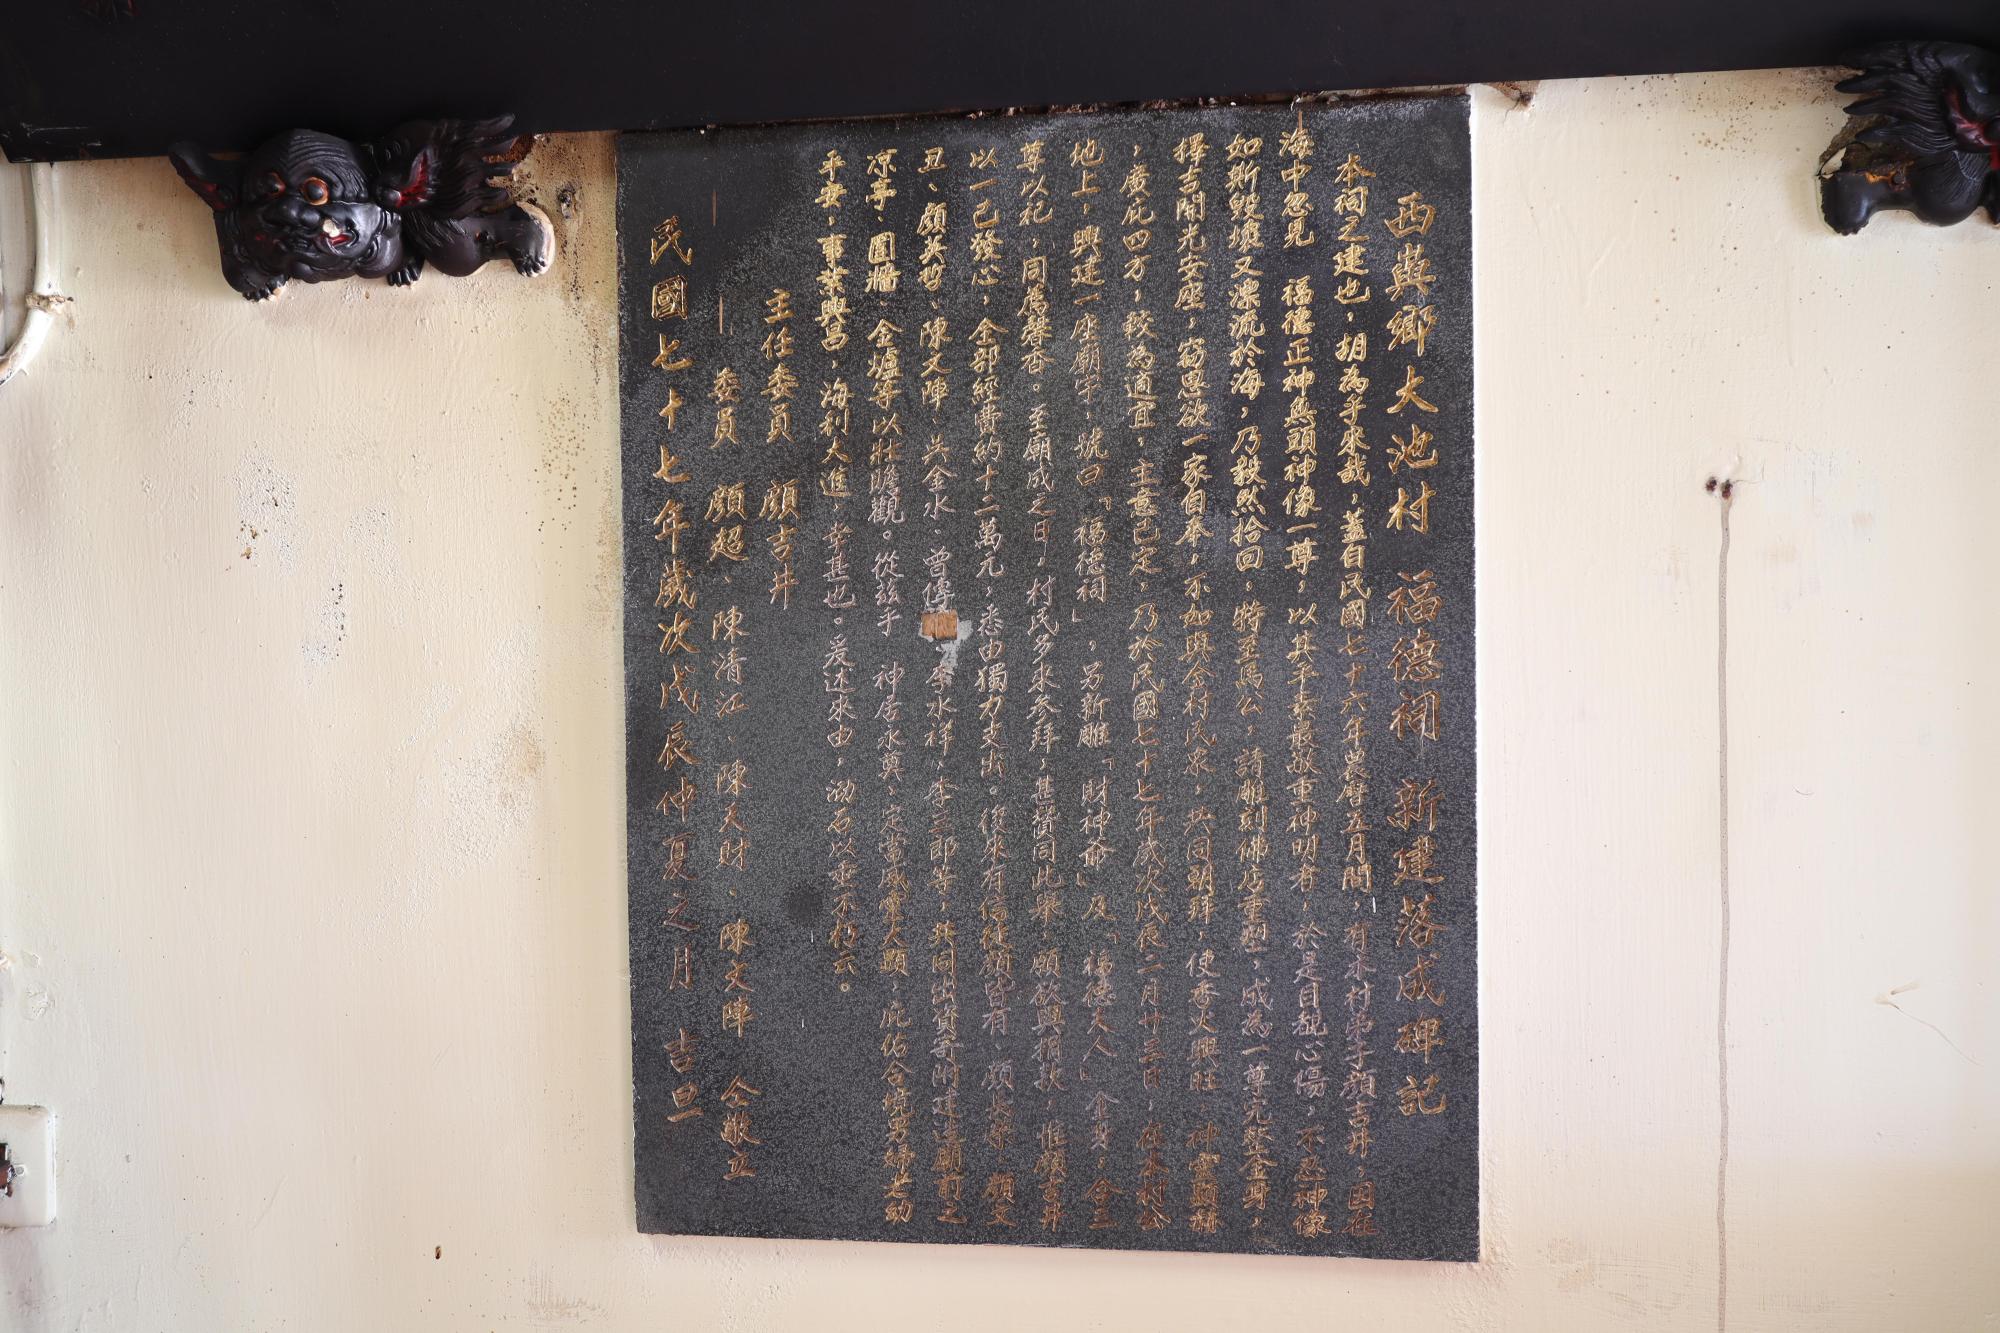 西嶼鄉大池村　福德祠　新建落成碑記
本祠之建也，胡為乎來哉，蓋自民國七十六年農曆五月間，有本村弟子顏吉井，因在
海中忽見　福德正神無頭神像一尊，以其平素最敬重神明者，於是目覩心傷，不忍神像
如斯毀壞又漂流於海，乃毅然拾回，特至馬公，請雕刻佛店重塑，成為一尊完整金身，
擇吉開光安座，竊思欲一家自奉，不如與全村民眾，共同朝拜，使香火興旺，神靈顯赫
，廣庇四方，較為適宜，主意已定，乃於民國七十七年歲次戊辰二月廿三日，在本村公
地上，興建一座廟宇，號曰「福德祠」，另新雕「財神爺」及「福德夫人」金身，合三
尊以祀，同為馨香。至廟成之日，村民多來參拜，甚贊同此舉，頗欲與捐款，惟顏吉井
以一己發心，全部經費約十二萬元，悉由獨力支出。後來有信徒顏皆有、顏長樂、顏文
丑、顏英哲、陳文陣、吳金水、曾得　、李水祥、李三郎等，共同出資寄附建造廟前之
凉亭、圍牆、金爐等以壯瞻觀。從茲乎　神居永奠，定當威靈大顯，庇佑合境男婦老幼
平安，事業興昌，海利大進，幸甚也。爰述來由，泐石以垂不朽云。
主任委員　顏吉井
委員　顏超、陳清江、陳天財、陳文陣　仝敬立
民國七十七年歲次戊辰仲夏之月　吉旦